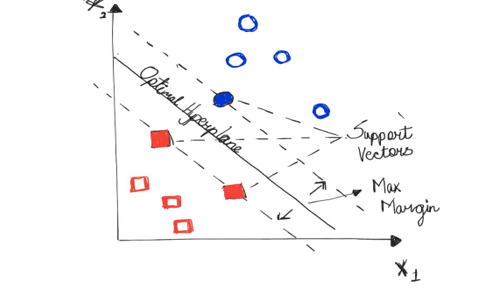 x2
Optimal Hyperplane
Support
Vectors
Max
Margin
x1